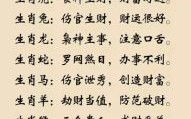 生肖兔：伤官生财，财运很好。
生肖龙：枭神主事，注意口舌。
生肖蛇：罗网煞日，办事不利。
生肖马：伤官泄秀，创造财富。
生肖羊：劫财当值，防范破财。